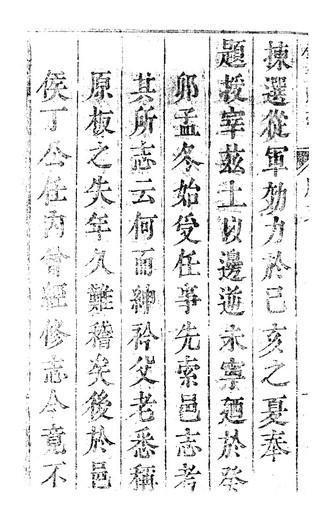 揀選從軍効力於己亥之夏奉
題授宰茲土以邊逌未寧廼於癸
卯孟冬始受任事先索邑志考
其所志云何而紳衿父老悉稱
原板之失年久難稽矣後於邑
侯丁公任內曾經修志今竟不